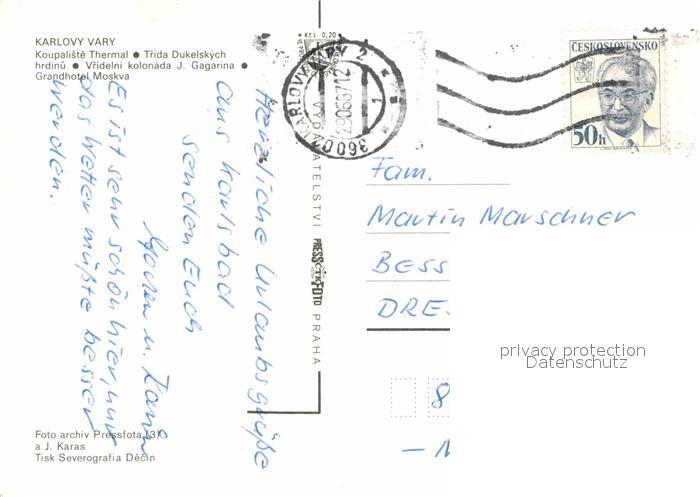 KARLOVY VARY
Koupaliště Thermal ● Třída Dukelských
hrdinů ● Vřídelní kolonáda J. Gagarina ●
Grandhotel Moskva
Herzliche Urlaubsgrüße
aus Karlsbad
senden Euch
u.
Es ist sehr schön hier, nur
das Wetter müßte besser
werden.
Foto archiv Pressfota (3)
a J. Karas
Tisk Severografia Děčín
Kčs 0,20
VYDAVATELSTVÍ PRESSFOTO PRAHA
ČTK
KARLOVY VARY 2
36000
1
ČESKOSLOVENSKO
50h
Fam.
Martin Marschner
Bess
DRE
8
– N
privacy protection
Datenschutz